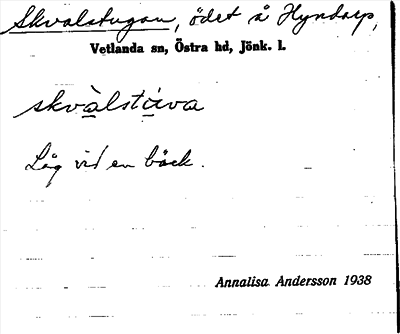 Skvalstugan, ödet å Hyndarp,
Vetlanda sn, Östra hd, Jönk. l.
skvàlstùva
Låg vid en bäck.
Annalisa Andersson 1938